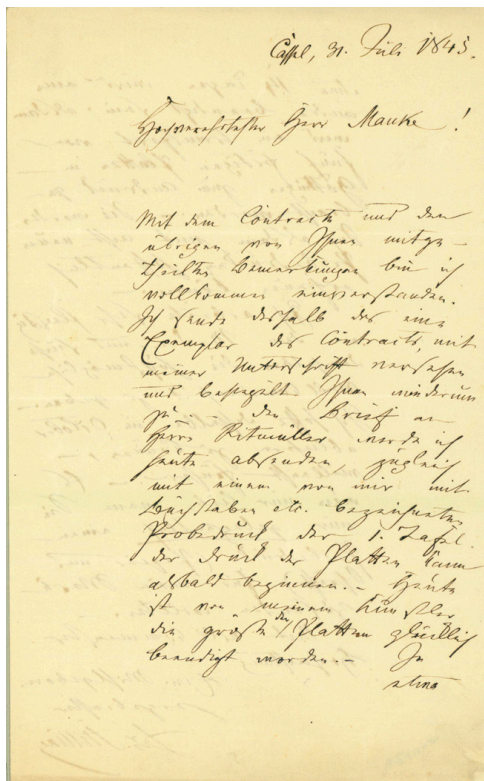 Cassel, 31. Juli 1845.
Hochverehrtester Herr Mauke!
Mit dem Contracte und den
übrigen von Ihnen mitge-
theilten Bemerkungen bin ich
vollkommen einverstanden.
Ich sende deshalb das eine
Exemplar des Contracts, mit
meiner Unterschrift versehen
und besiegelt Ihnen wiederum
zu. - den Brief an
Herrn Ritmüller werde ich
heute absenden, zugleich
mit einem von mir mit
Buchstaben etc. bezeichneten
Probedruck der 1. Tafel.
der Druck der Platten kann
alsbald beginnen. - Heute
ist von meinem Künstler
die größte der Platten glücklich
beendigt worden. - In
etwa